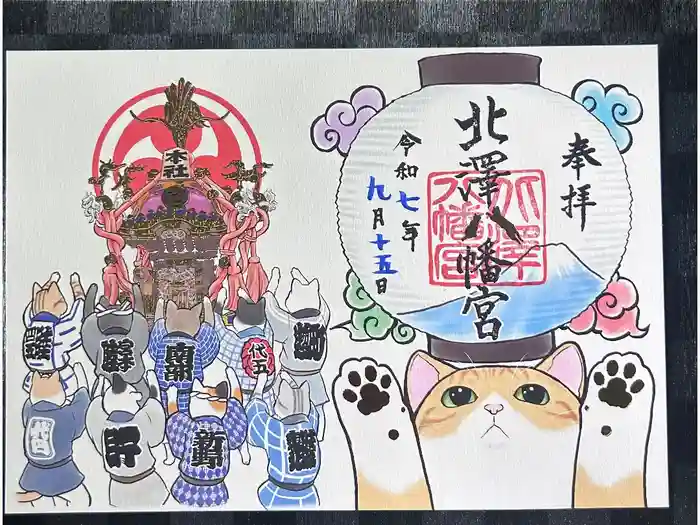 奉拝
北澤八幡宮
令和七年
九月十五日
北澤
八幡宮
本社
南部
代五
新町